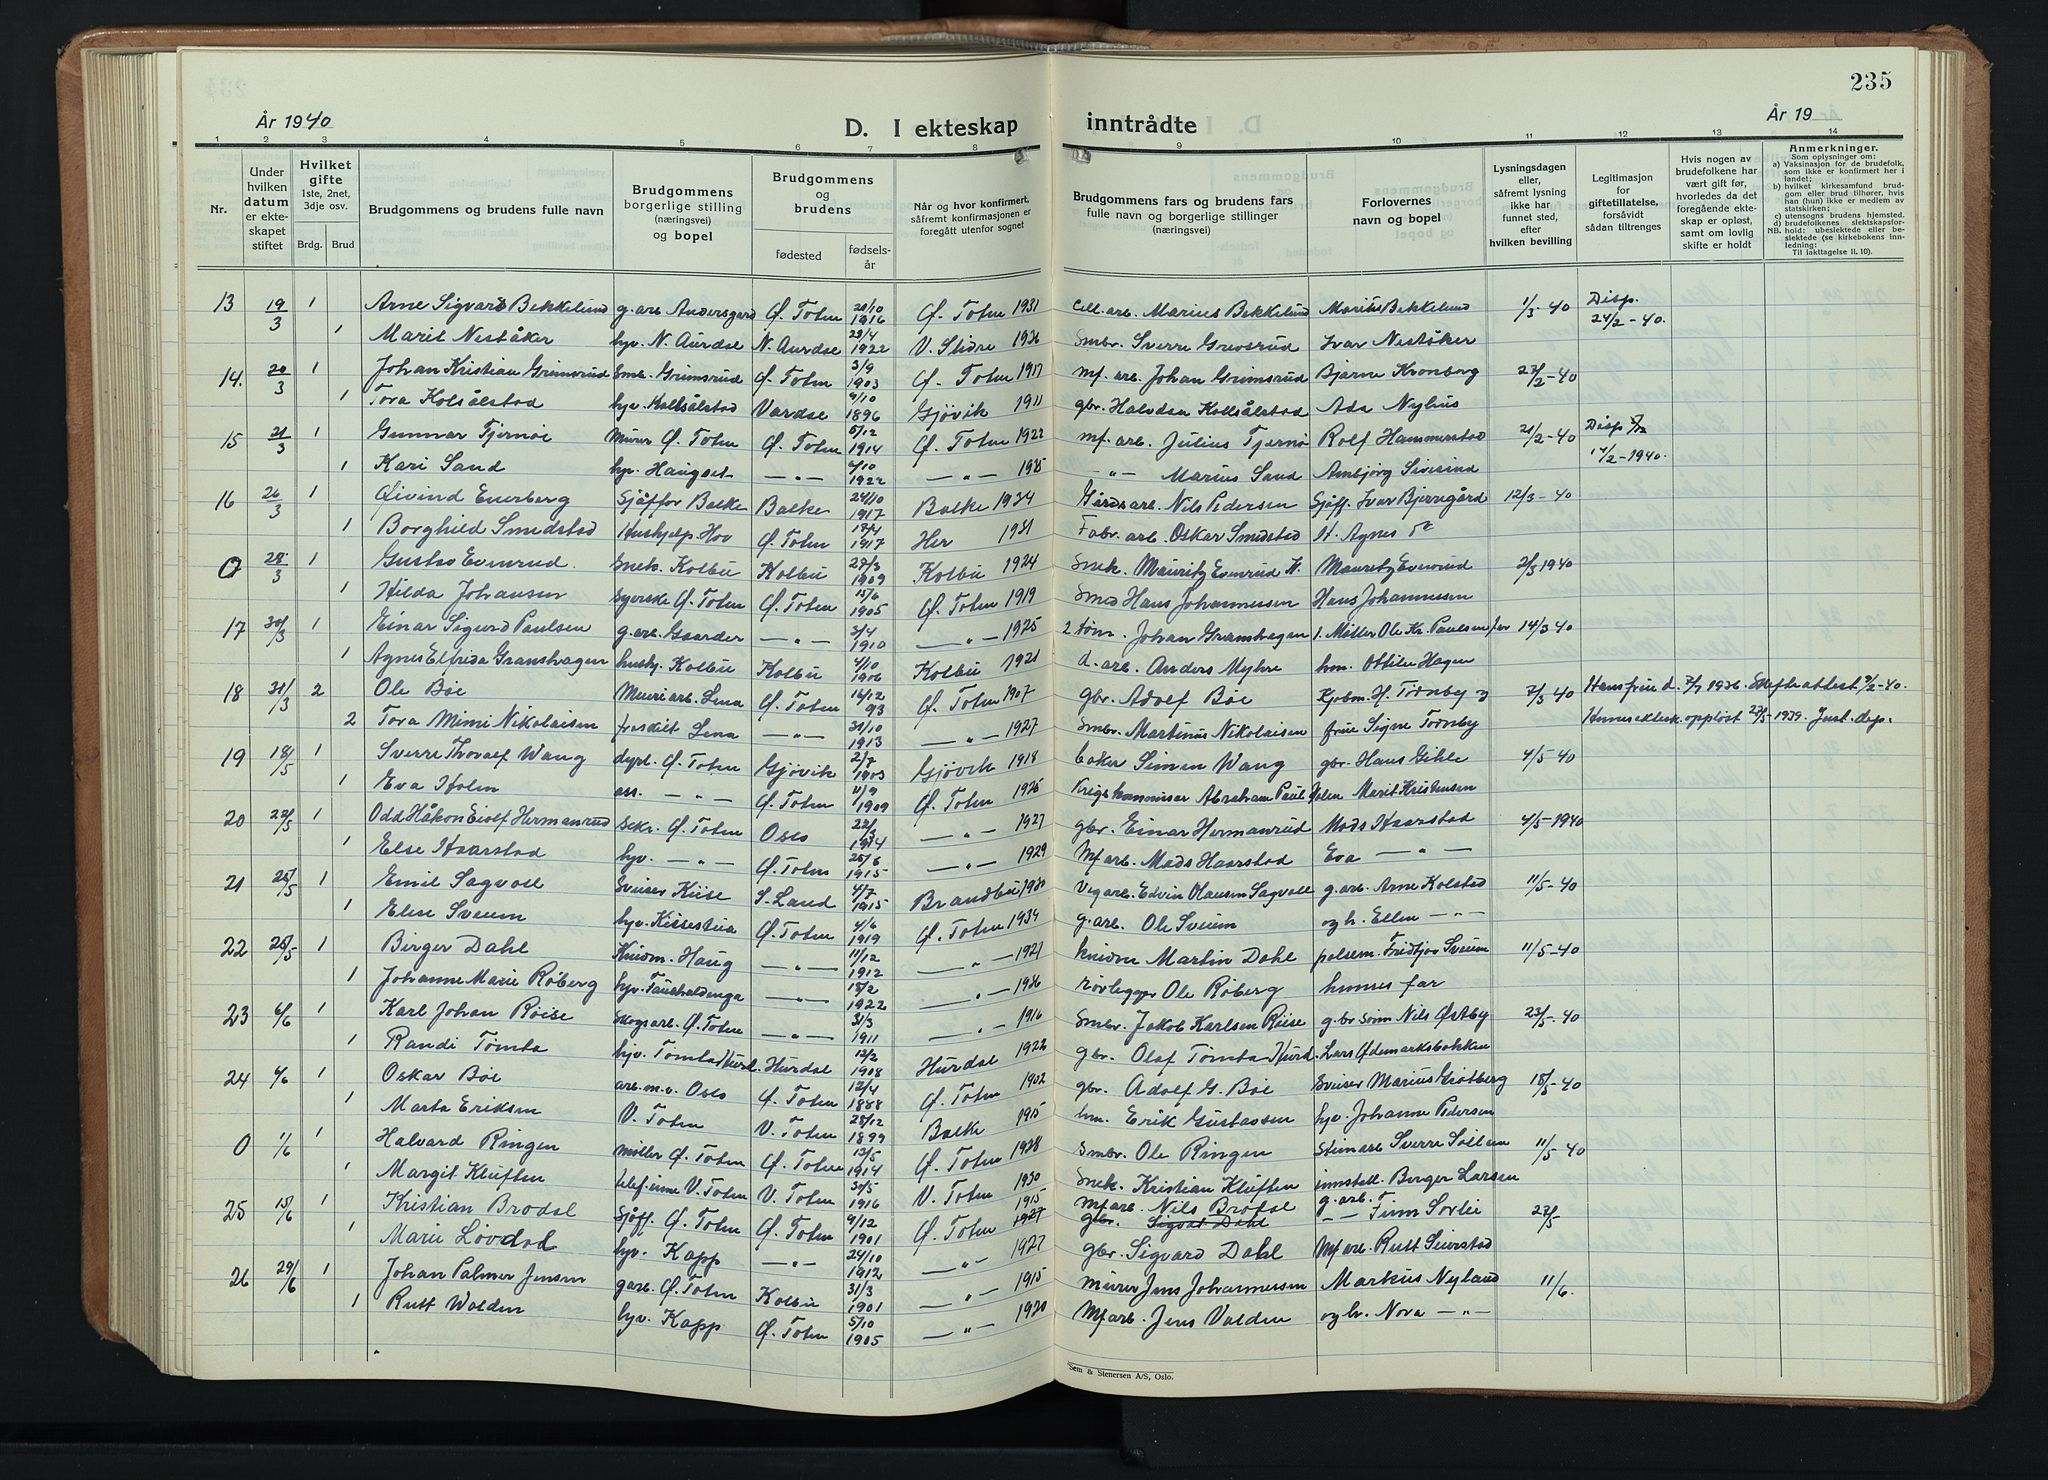 235
År 1940
D. I ekteskap
inntrådte
År 19
1 2 3 4 5 6 7 8 9 10 11 12 13 14
Nr.
Under hvilken datum er ekteskapet stiftet
Hvilket gifte 1ste, 2net, 3dje osv.
Brdg. Brud
Brudgommens og brudens fulle navn
Brudgommens borgerlige stilling (næringsvei) og bopel
Brudgommens og brudens
fødested
fødselsår
Når og hvor konfirmert, såfremt konfirmasjonen er foregått utenfor sognet
Brudgommens fars og brudens fars fulle navn og borgerlige stillinger (næringsvei)
Forlovernes navn og bopel
Lysningsdagen eller, såfremt lysning ikke har funnet sted, efter hvilken bevilling
Legitimasjon for giftetillatelse, forsåvidt sådan tiltrenges
Hvis nogen av brudefolkene har vært gift før, hvorledes da det foregående ekteskap er opløst, samt om lovlig skifte er holdt
Anmerkninger.
Som oplysninger om:
a) Vaksinasjon for de brudefolk, som ikke er konfirmert her i landet;
b) hvilket kirkesamfund brudgom eller brud tilhører, hvis han (hun) ikke er medlem av statskirken;
c) utensogns brudens hjemsted.
d) brudefolkenes slektskapsforhold: ubeslektede eller beslektede (se kirkebokens innledning:
NB.
Til iakttagelse II. 10).
13 19/3 1 Arne Sigvard Bekkelund g. arb. Andersgard Ø. Toten 20/10 1916 Ø. Toten 1931 Cell. arb. Marius Bekkelund Marius Bekkelund 1/3-40 Disp. 24/2-40.
1 Marit Neståker hjv. N. Aurdal N. Aurdal 29/4 1922 V. Slidre 1936 Smbr. Sverre Grevsrud Ivar Neståker
14. 20/3 1 Johan Kristian Grimsrud Smb. Grimsrud Ø. Toten 3/9 1903 Ø. Toten 1917 mf. arb. Johan Grimsrud Bjarne Kronberg 27/2-40
1 Tora Kolsålstad hjv. Kollsålstad Vardal 9/10 1896 Gjøvik 1911 gbr. Halvdan Kollsålstad Ada Nyhus
15 21/3 1 Gunnar Tjernøe Murer Ø. Toten Ø. Toten 5/12 1914 Ø. Toten 1922 mf. arb. Julius Tjernø Rolf Hammerstad 21/2-40 Disp 17/2-1940.
1 Kari Sand hjv. Haugset —"— 4/10 1922 —"— 1935 —"— Marius Sand Ambjørg Sivesind
16 26/3 1 Øivind Enerberg Sjåffør Balke Balke 24/10 1917 Balke 1934 Gårdsarb. Nils Pedersen Sjåff. Ivar Bjerregård 12/3-40
1 Borghild Smedstad Hushjelp Hov Ø. Toten 17/4 1917 Her 1931 Fabr. arb. Oskar Smedstad H. Agnes do
0 28/3 1 Gustav Evenrud. Snek. Kolbu Kolbu 27/3 1909 Kolbu 1924 Snek. Mauritz Evenrud K. Mauritz Evenrud 2/3 1940
1 Hilda Johansen Syerske Ø. Toten Ø. Toten 15/6 1905 Ø. Toten 1919 Smed Hans Johannessen Hans Johannessen
17 30/3 1 Einar Sigurd Paulsen g. arb. Gaarder —"— 3/4 1910 —"— 1925 2 tøm. Johan Granshagen 1. Møller Ole Kr. Paulsen far 14/3 40
1 Agnes Elfrida Granshagen hushj. Kolbu Kolbu 4/10 1906 Kolbu 1921 d. arb. Anders Myhre hm. Ottilie Hagen
18 31/3 2 Ole Bøe Murerarb. Lena Ø. Toten 16/12 93 Ø. Toten 1907 gbr. Adolf Bøe Kjøbm. H. Tørnby og 7/3 40 Hans frue d. 7/7 1936. Skifteattest 9/2-40.
2 Tora Mimi Nikolaisen fraskilt Lena —"— 31/10 1913 —"— 1927 Smbr. Martinus Nikolaisen frue Signe Tørnby Hennes ektesk. oppløst 27/5-1939. Just. dep.
19 18/5 1 Sverre Thoralf Wang dyrl. Ø. Toten Gjøvik 2/7 1903 Gjøvik 1918 baker Simen Wang gbr. Hans Gihle 4/5-40
1 Eva Holm ass. —"— Ø. Toten 11/9 1909 Ø. Toten 1925 Krigskommisær Abraham Paul Holm Marit Kristensen
20 22/5 1 Odd Håkon Eiolf Hermanrud Sekr. Ø. Toten Oslo 22/3 1914 —"— 1927 gbr. Einar Hermanrud Mads Haarstad 4/5-1940
1 Else Haarstad hjv. —"— Ø. Toten 25/6 1915 —"— 1929 Mf arb. Mads Haarstad Eva —"—
21 25/5 1 Emil Sagvoll Sveiser Kiise S. Land 4/7 1915 Brandbu 1930 Vegarb. Edvin Olausen Sagvoll g. arb. Arne Kolstad 11/5-40
1 Else Sveum hjv. Kiisestua Ø. Toten 4/6 1919 Ø. Toten 1934 g. arb. Ole Sveum og h. Ellen —"—
22 25/5 1 Birger Dahl Kuidm. Haug —"— 11/12 1912 —"— 1927 kuidm Martin Dahl pølsem. Fridtjov Sveum 11/5-40
1 Johanne Marie Røberg hjv. —"— 15/2 1922 —"— 1936 rørlegger Ole Røberg hennes far
23 6/6 1 Karl Johan Røise Skogsarb. Ø. Toten —"— 31/3 1911 —"— 1916 Smbr. Jakob Karlsen Røise g. br sønn Nils Østby 23/5-40
1 Randi Tømta hjv. Tømta Hurd. Hurdal 12/2 1908 Hurdal 1922 gbr. Olaf Tømta Hurd. Lars Ødemarksbakken
24 6/6 1 Oskar Bøe arb. m. v. Oslo Ø. Toten 12/4 1888 Ø. Toten 1902 gbr. Adolf G. Bøe Sveiser Marius Grøtberg 18/5-40
1 Marta Eriksen V. Toten V. Toten 28/12 1899 Balke 1915 hm. Erik Gustavsen hjv. Johanne Pedersen
0 1/6 1 Halvard Ringen møller Ø. Toten Ø. Toten 13/5 1914 Ø. Toten 1928 Smbr. Ole Ringen Steinarb Sverre 11/5 40
1 Margit Kluften V. Toten V. Toten 30/5 1916 V. Toten 1930 Snek. Kristian Kluften innstall. Birger Larsen
25 15/6 1 Kristian Brodal Sjåff. Ø. Toten Ø. Toten 9/12 1901 Ø. Toten 1915 1927 Mfarb. Nils Brodal gbr. Sigvat Dahl g. arb. Finn Sorlie 27/5
1 Marie Løvdal hjv. Kapp —"— 24/10 1912 —"— 1927 gbr. Sigvard Dahl Mf arb. Rutt Seierstad
26 29/6 1 Johan Palmer Jensen garb. Ø. Toten Kolbu 31/3 1901 —"— 1915 murer Jens Johannessen Markus Nyland 11/6.
1 Rutt Walden hjv. Kapp Ø. Toten 5/10 1905 —"— 1920 Mf arb. Jens Valden og h. Nora —"—
Sem & Stenersen A/S, Oslo.